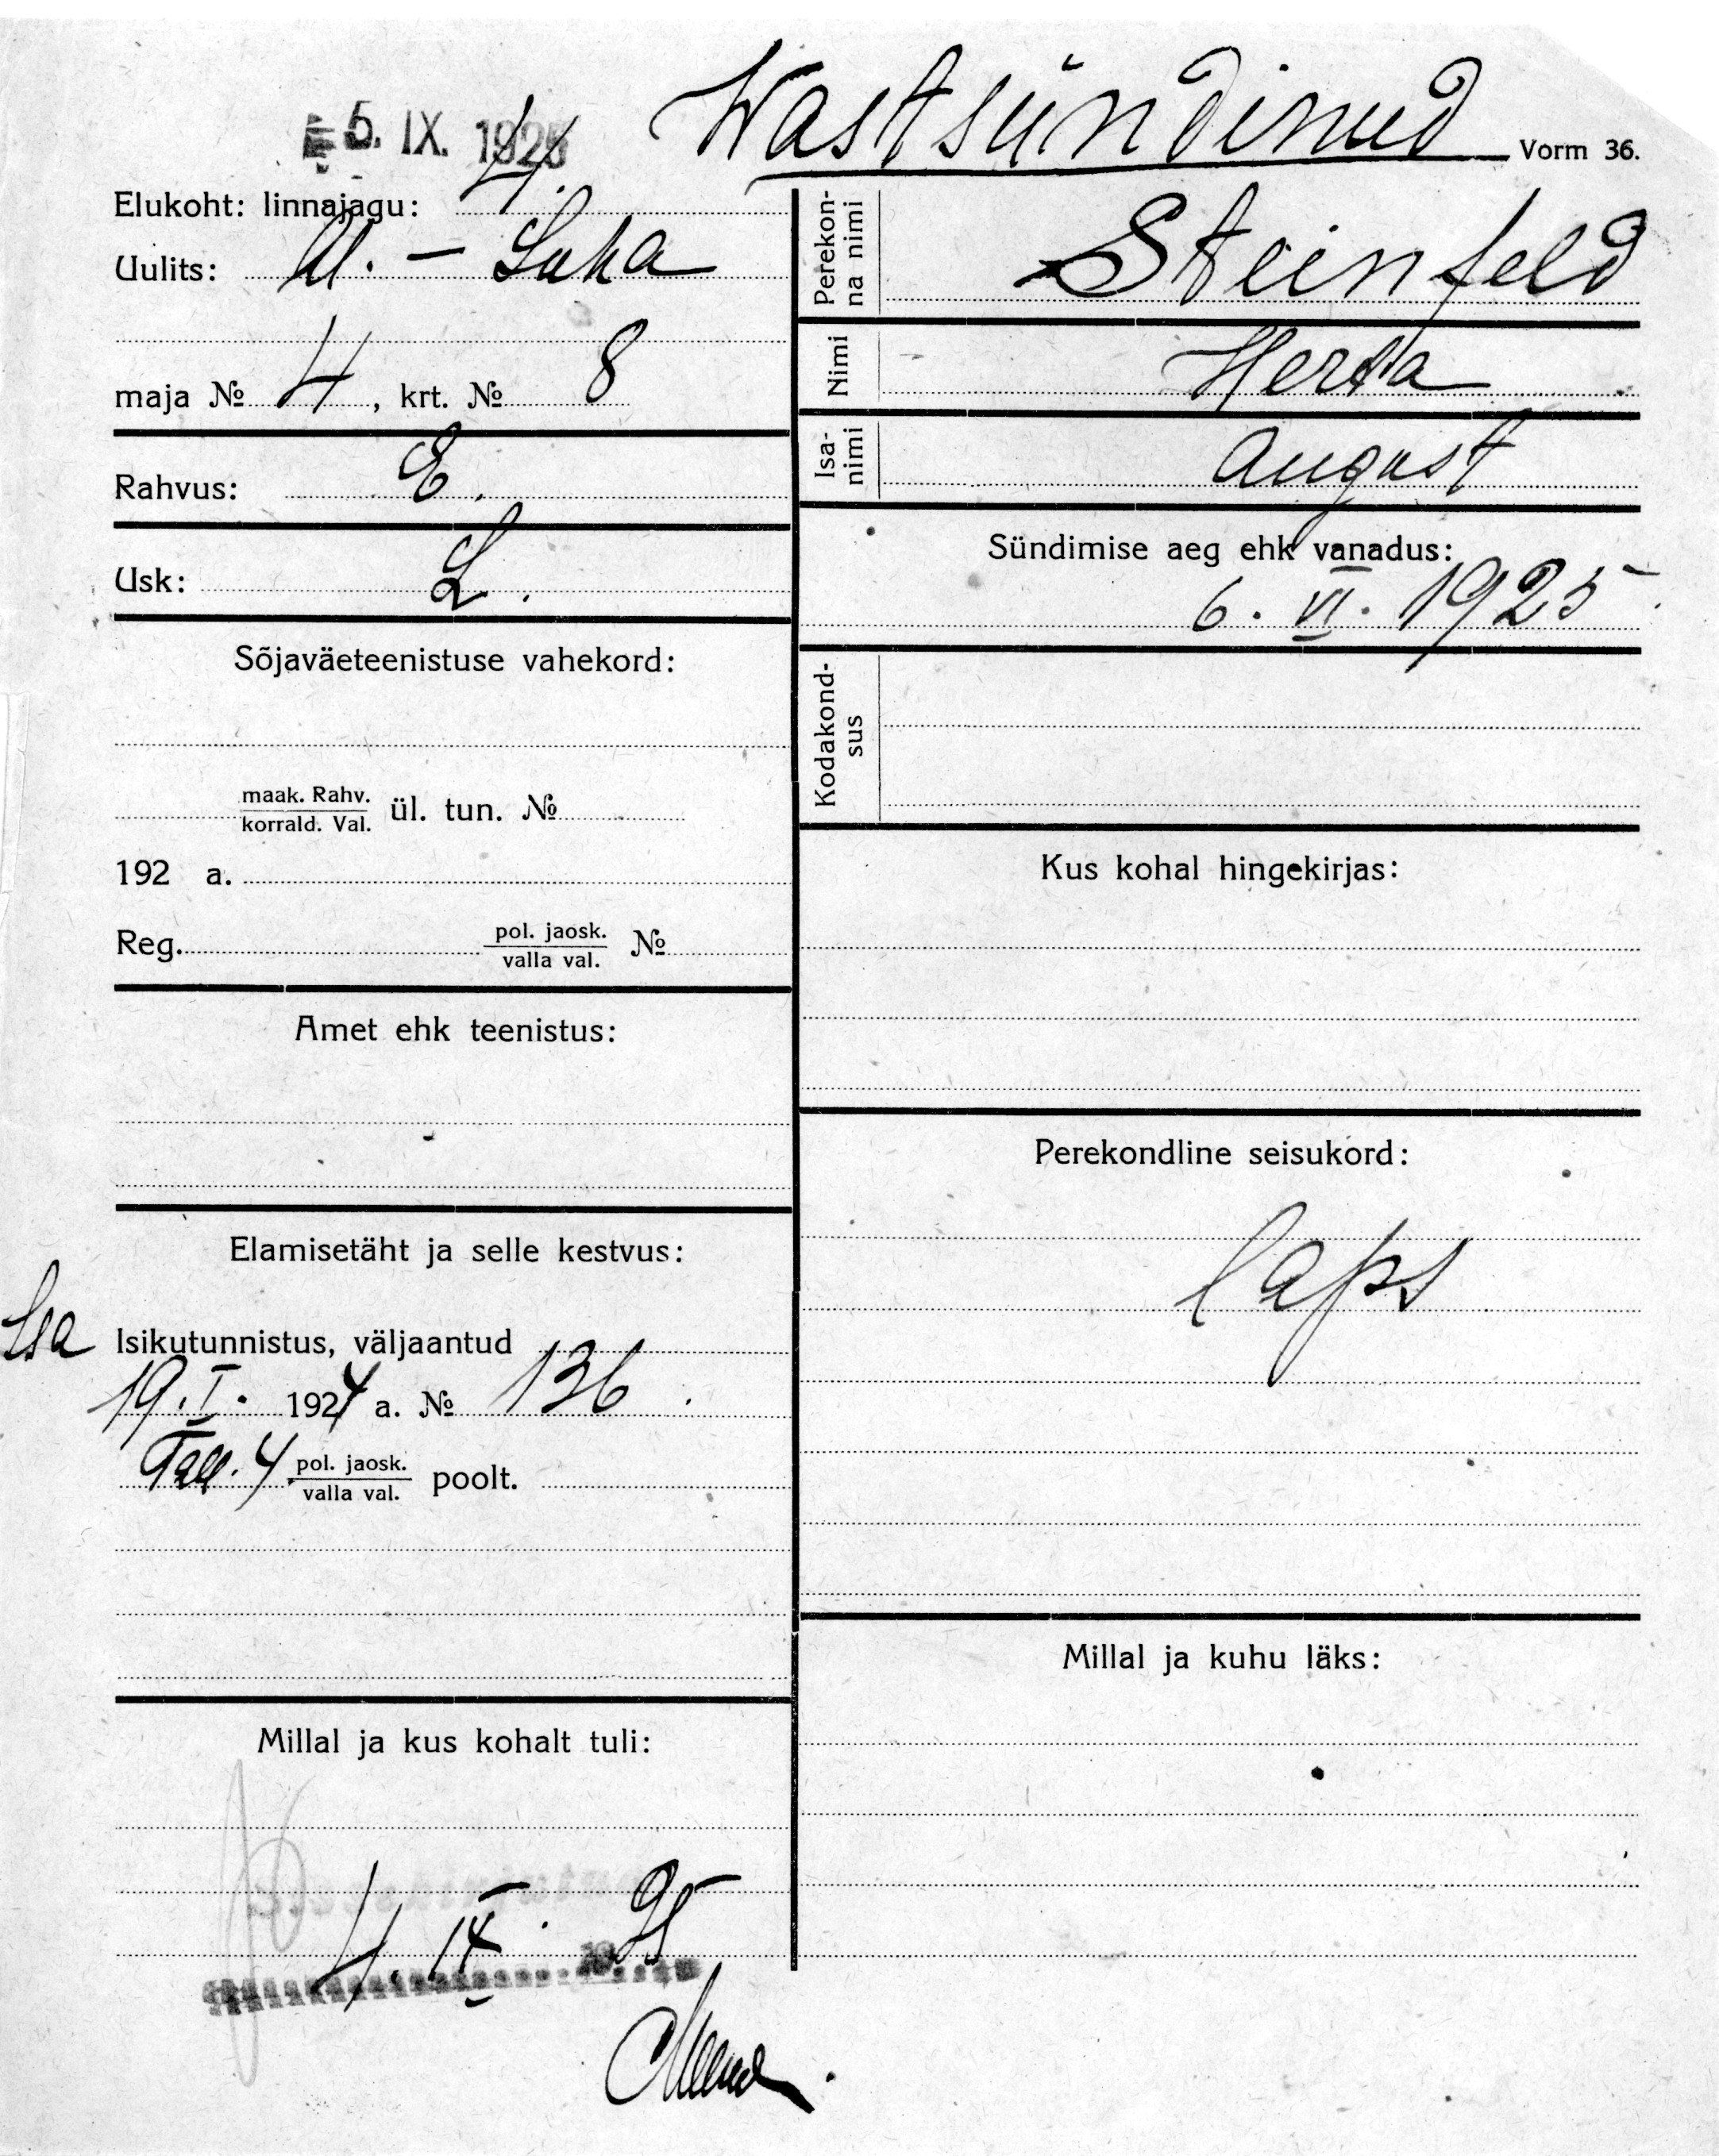 5. IX. 1925
Wastsündinud
Vorm 36.
Elukoht: linnajagu: 4.
Uulits: U. - Suka
maja № 4, krt. № 8
Rahvus: E.
Usk: L.
Sõjaväeteenistuse vahekord:
maak. Rahv.
korrald. Val. ül. tun. №
192 a.
Reg. pol. jaosk.
valla val. №
Amet ehk teenistus:
Elamisetäht ja selle kestvus:
Isa Isikutunnistus, väljaantud
19. I. 1924 a. № 136.
Tall. 4. pol. jaosk.
valla val. poolt.
Millal ja kus kohalt tuli:
4. IX. 25
Perekon-
na nimi Steinfeld
Nimi Herta
Isa-
nimi August
Sündimise aeg ehk vanadus:
6. VI. 1925
Kodakond-
sus
Kus kohal hingekirjas:
Perekondline seisukord:
laps
Millal ja kuhu läks: